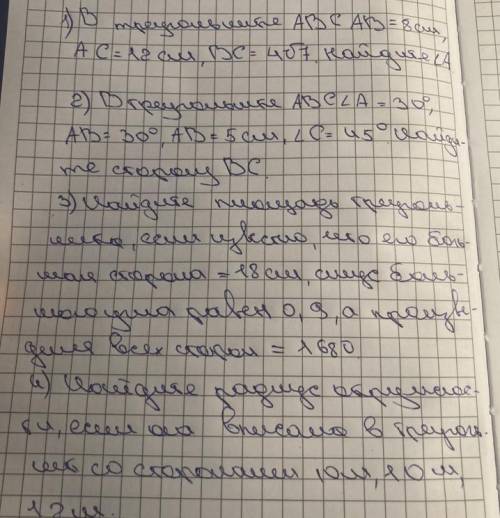 1) В треугольнике АВС АВ = 8 см,
АС = 12 см, ВС = 4√7. Найдите ∠А
2) В треугольнике АВС ∠А = 30°,
АВ = 30°, АВ = 5 см, ∠С = 45° Найди-
те сторону ВС.
3) Найдите площадь треуголь-
ника, если известно, что его боль-
шая сторона = 18 см, синус боль-
шого угла равен 0,9, а произве-
дения всех сторон = 1680
4) Найдите радиус окружнос-
ти, если она вписана в треуголь
ник со сторонами 10 м, 10 м,
12 м.